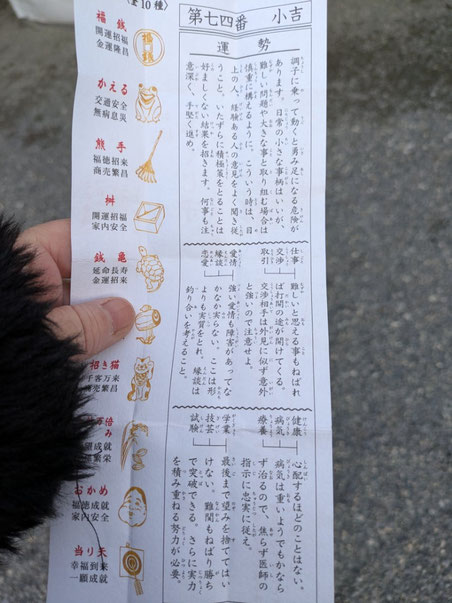 第七四番　小吉
運勢
調子に乗って動くと勇み足になる危険が
あります。日常の小さな事柄はいいが、
難しい問題や大きな事と取り組む場合は
慎重に構えるように。こういう時は、目
上の人、経験ある人の意見をよく聞き従
うこと、いたずらに積極策をとることは
好ましくない結果を招きます。何事も注
意深く、手堅く進め。
仕事
交渉
取引
難しいと思える事もねばれ
ば打開の途が開けてくる。
交渉相手は外見に似ず意外
と強いので注意せよ。
愛情
縁談
恋愛
強い愛情も障害があってな
かなか実らない。ここは形
よりも実質をとれ。縁談は
釣り合いを考えること。
健康
病気
療養
心配するほどのことはない。
病気は重いようでもかなら
ず治るので、焦らず医師の
指示に忠実に従え。
学業
技芸
試験
最後まで望みを捨ててはい
けない。難関もねばり勝ち
で突破できる。さらに実力
を積み重ねる努力が必要。
全10種）
福銭
開運招福
金運隆昌
福銭
かえる
交通安全
無病息災
熊手
福徳招来
商売繁昌
桝
開運招福
家内安全
銭亀
延命長寿
金運招来
招き猫
千客万来
商売繁昌
成就
繁栄
おかめ
福徳成就
家内安全
当り矢
幸福到来
一願成就